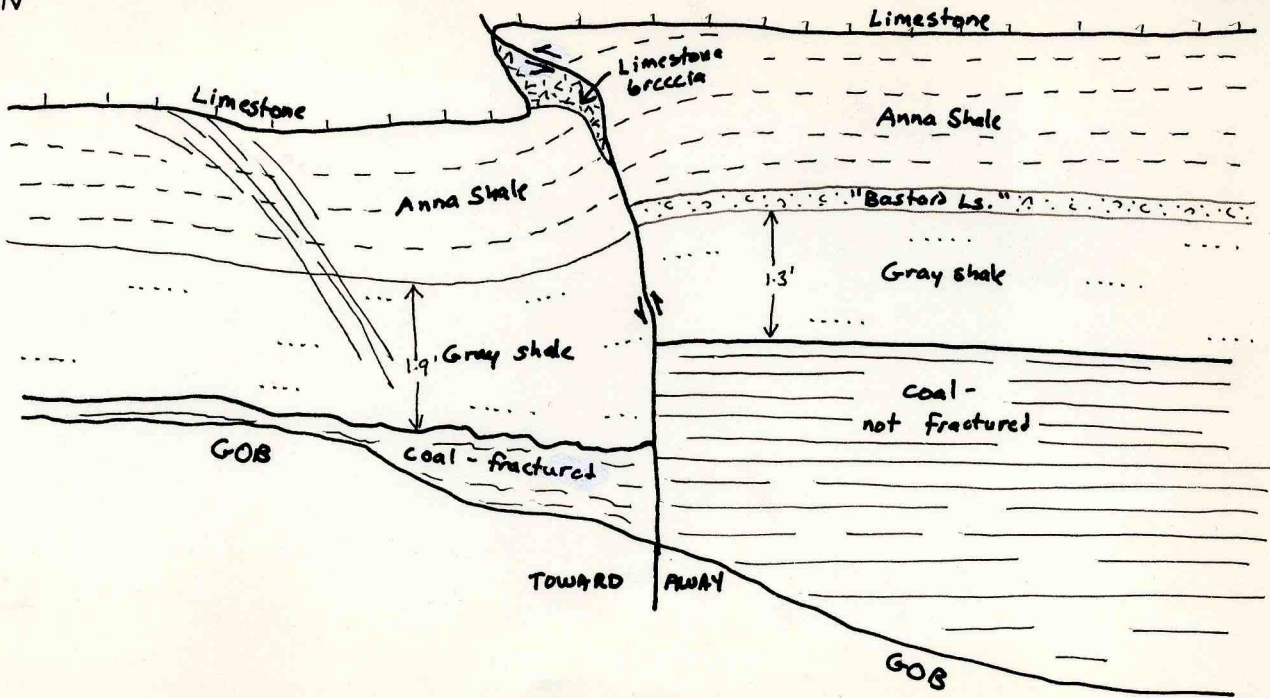 N
Limestone
Limestone
breccia
Limestone
Anna Shale
Anna Shale
"Bastard Ls."
1.3'
Gray shale
1.9'
Gray shale
coal -
not fractured
GOB
coal - fractured
TOWARD
AWAY
GOB